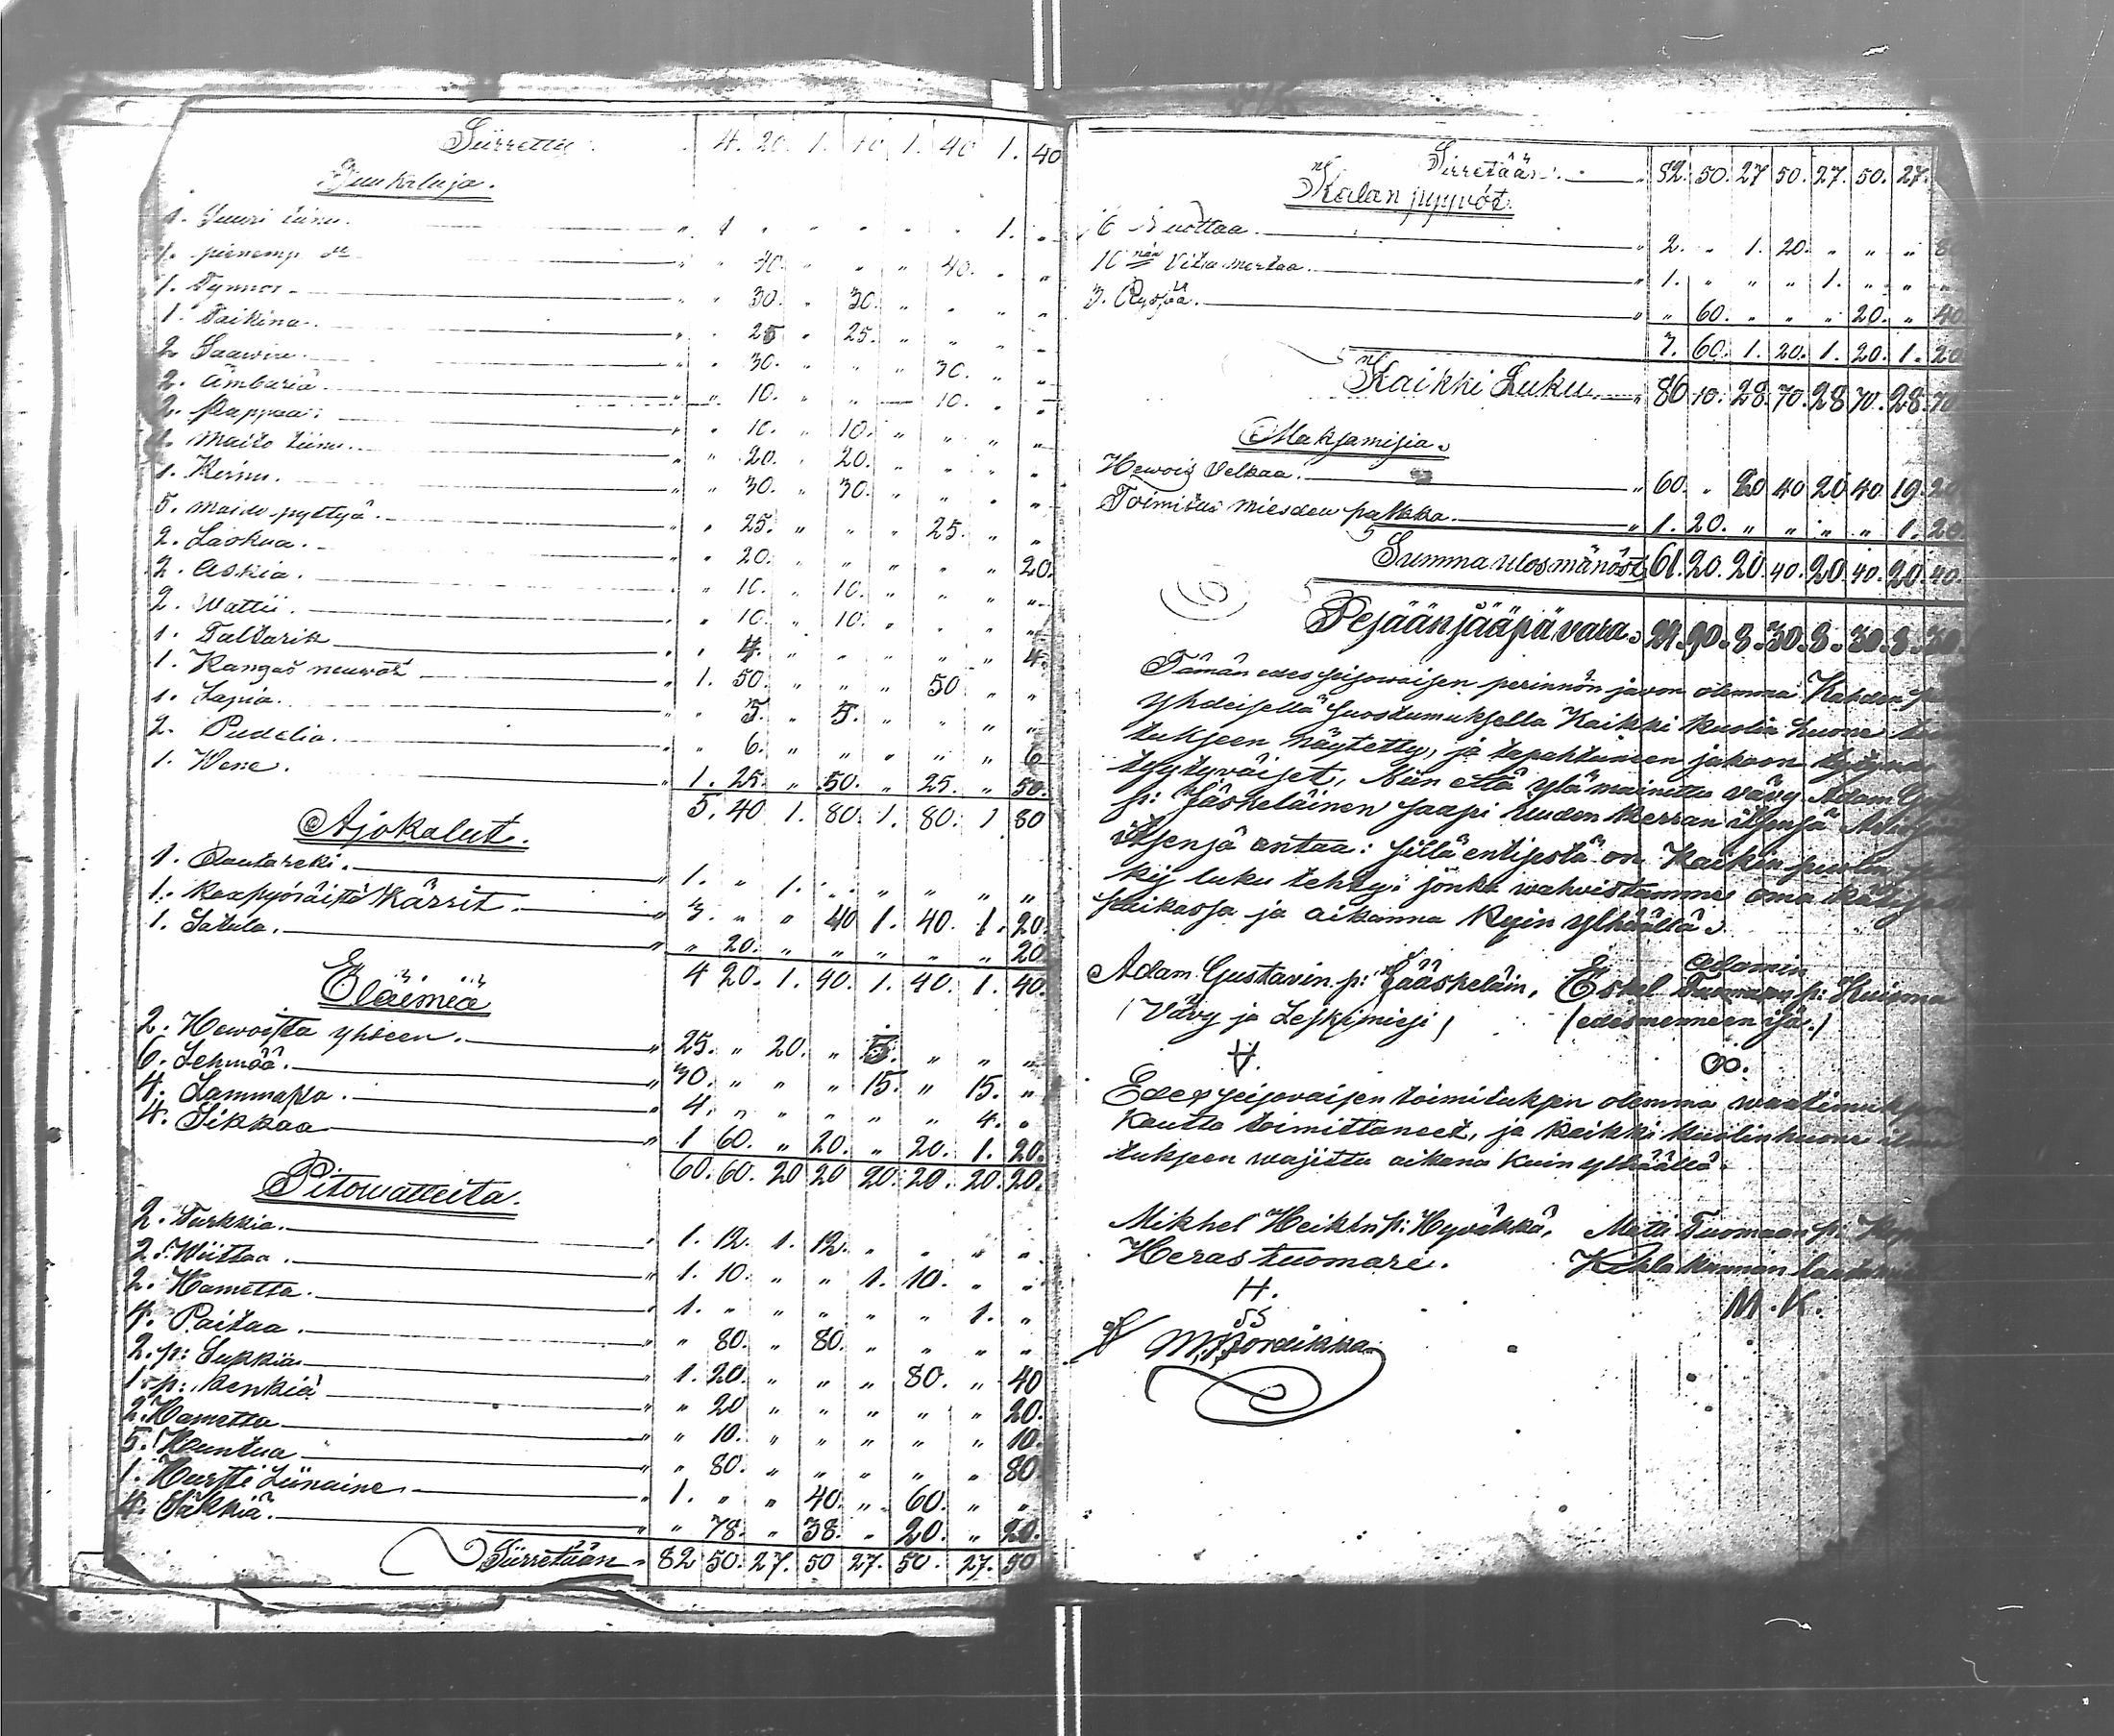 Siirretty 4. 20. 1. 40. 1. 40 1. 40
Puukaluja.
1. Suuri tiinu. " 1 " " " " " 1. "
1. pienemp " " 40. " " " 40. " "
1. Tynnör " " 30. " 30. " " " "
1. Taikina. " " 25 " 25. " " " "
2 Saawia. " " 30. " " " 30. " "
2. Ämbäriä. " " 10. " " " 10. " "
2. Kappaa. " " 10. " 10. " " " "
1. Maito tiinu. " " 20. " 20. " " " "
1. Kirnu. " " 30. " 30. " " " "
5. maito pyttyä. " " 25. " " " 25. " "
2. Laokua. " " 20. " " " " " 20.
2. Askia. " " 10. " 10. " " " "
2. Wattii. " " 10. " 10. " " " "
1. Taltarik " " 4. " " " " " 4.
1. Kangas neuwot " 1. 50. " " " 50 " "
1. Lapia. " " 5. " 5. " " " "
2. Pudelia. " " 6. " " " " " 6
1. Wene. " 1. 25. " 50. " 25. " 50.
5. 40 1. 80. 1. 80. 1 80
Ajokalut.
1. Rautareki. " 1. " 1. " " " " "
1. kaxpyöräistä Kärrit. " 3. " " 40 1. 40. 1. 20.
1. Satula. " " 20. " " " " " 20
4 20. 1. 40. 1. 40. 1. 40.
Eläimiä
2. Hewoista yhteen. " 25. " 20. " 5. " " "
6. Lehmää. " 30. " " " 15. " 15. "
4. Lammasta. " 4. " " " " " 4. "
4. Sikkaa " 1 60. " 20. " 20. 1. 20.
60. 60. 20 20 20. 20. 20. 20.
Pitowatteita.
2. Turkkia. " 1. 12. 1. 12. " " " "
2. Wiittaa. " 1. 10. " " 1. 10. " "
2. Hametta. " 1. " " " " " 1. "
4. Paitaa. " " 80. " 80. " " " "
2. p: Sukkia " 1. 20. " " " 80. " 40
1. p: kenkiä " " 20 " " " " " 20.
2. Hametta " " 10. " " " " " 10.
5. Huntua " " 80. " " " " " 80
1. Hursti Liinaine " 1. " " 40. " 60. " "
4. Säkkiä. " " 78. " 38. " 20. " 20.
Siirretään 82 50. 27. 50 27. 50. 27. 50
Siirretään. 82. 50. 27 50. 27. 50. 27.
Kalan pyyvöt.
6 Nuottaa. " 2. " 1. 20. " " " 8
10 nän Vita mertaa. " 1. " " " 1. " " "
3. Rysää. " " 60. " " " 20. " 40
3. 60. 1. 20. 1. 20. 1. 20
Kaikki Luku. " 86 10. 28. 70. 28 70. 28. 70
Maksamisia.
Hewois Velkaa. " 60. " 20 40 20 40 19. 20
Toimitus miesden palkka. " 1. 20. " " " " 1. 20.
Summa ulosmänöst 61. 20. 20. 40. 20 40. 20. 40.
Pejäänjääpä vara. 24. 90. 8. 30. 8. 30. 8. 30.
Tämän edesseisowaisen perinnön javon olemma Kahden
yhdeisellä suostumuksella Kaikki kuolin huone
tukseen näytetty, ja tapahtuneen jakoon
tyytyväiset, Niin että ylä mainittu vävy Adam
p: Jäskeläinen saapi uuden kerran itsensä
itsensä antaa: sillä entisestä on Kaikin puolin
kij luku tehty: jonka wahvistamme oma
paikassa ja aikanna kuin ylhäällä.
Adam Gustavin p: Jääskeläin, Eskel Adamin p: Kuisma
(Vävy ja Leskimiesi) (edesmenneen isä.)
Edesseisovaisen toimituksen olemma waatimuksen
kautta toimittaneet, ja kaikki kuolinhuone
tukseen wajittu aikana kuin ylhäällä.
Mikhel Heikin p: Hyväkkä, Matti Tuomaan p:
Herastuomari. Kihlakunnan
H. M. K.
SS